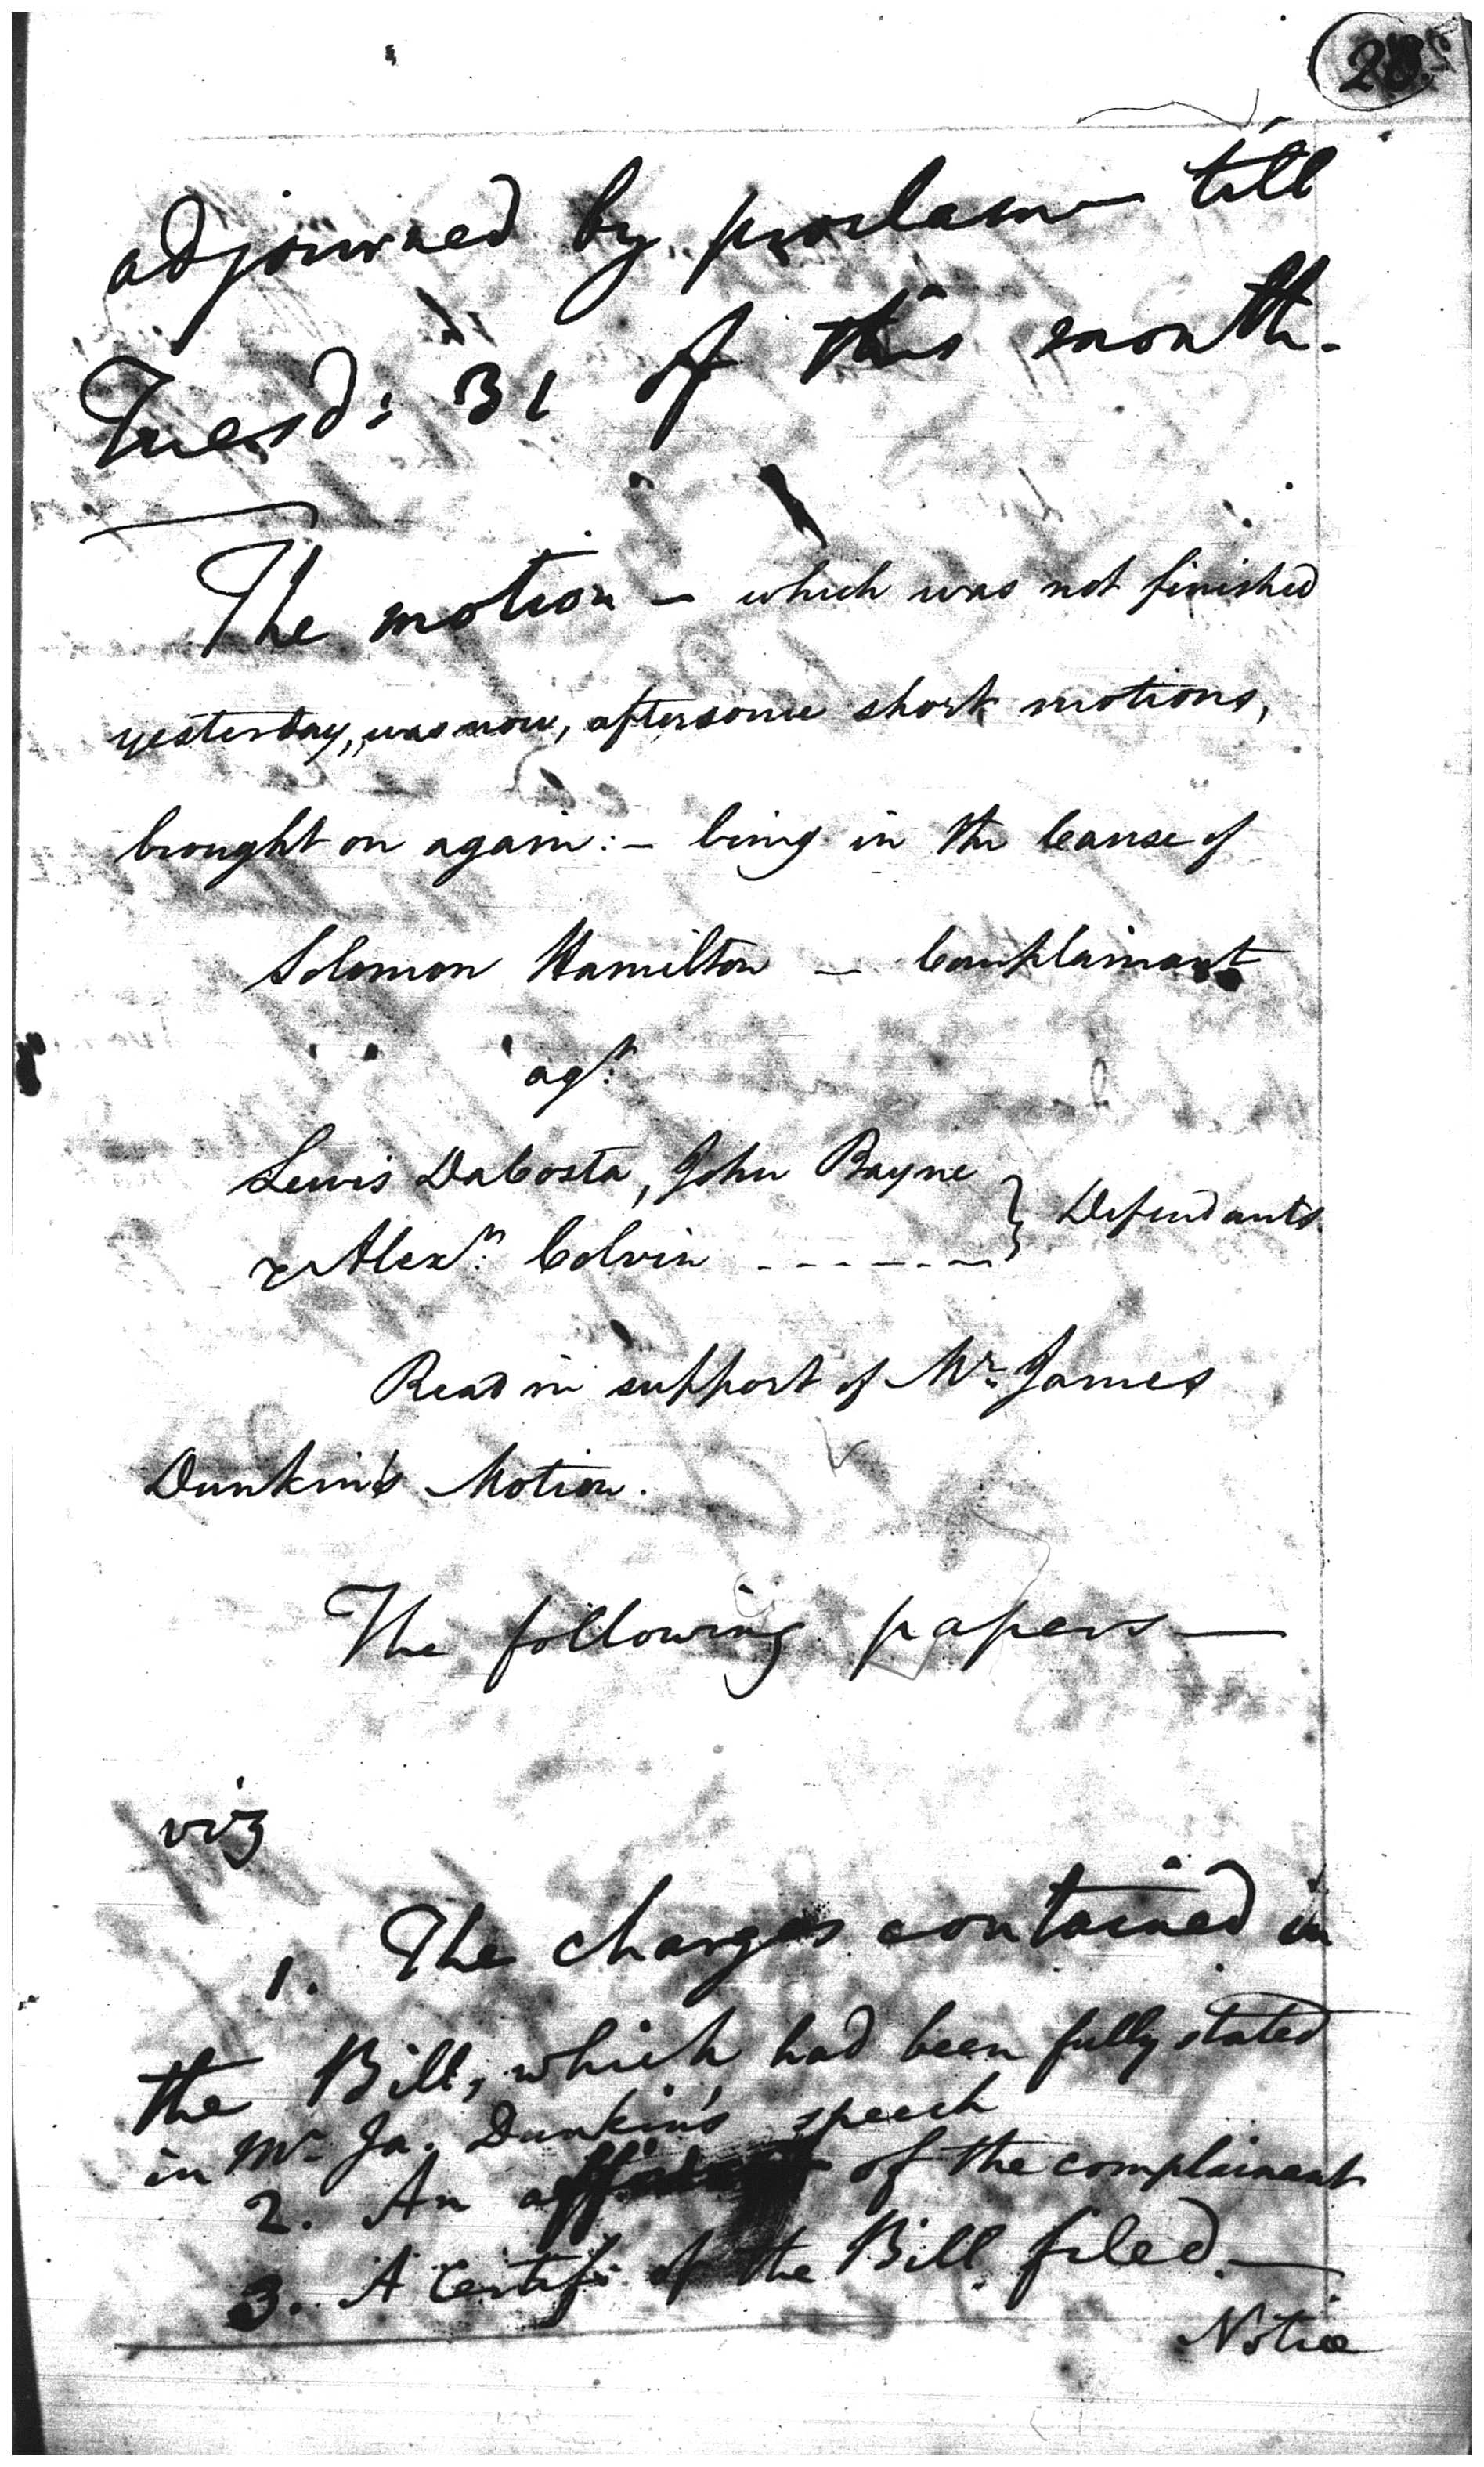 28
adjourned by proclam— till
Tuesd: 31 of this month.
The motion — which was not finished
yesterday, was now, after some short motions,
brought on again: — being in the Cause of
Solomon Hamilton — Complainant
agt.
Lewis DaCosta, John Bayne } Defendants.
& Alexr. Colvin - - - - - - -
Read in support of Mr. James
Dunkin's Motion.
The following papers —
viz
1. The charges contained in
the Bill, which had been fully stated
in Mr. Ja. Dunkin's speech
2. An of the complainant
3. A Certife. of the Bill filed. —
Notice